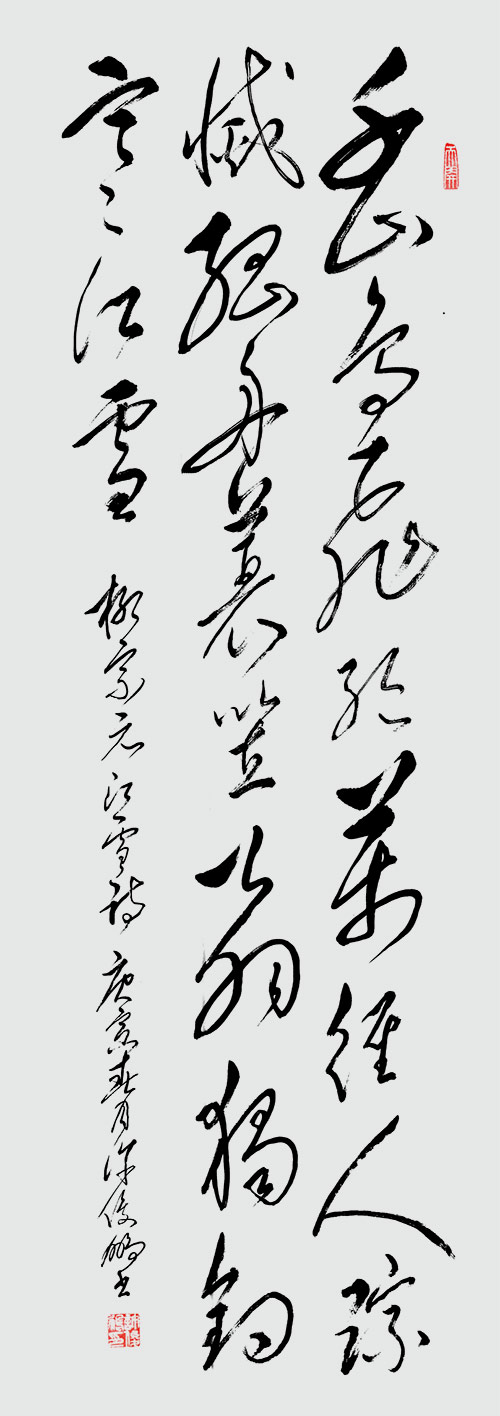 千山鳥飛絕萬徑人蹤
滅孤舟蓑笠翁獨釣
寒江雪 柳宗元江雪詩 庚寅春月俊鵬書